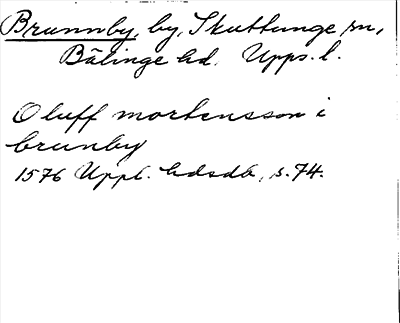 Brunnby, by, Skuttunge sn,
Bälinge hd. Upps. l.
Oluff mortensson i
brunby
1576 Uppl. hdsdb, s. 74.